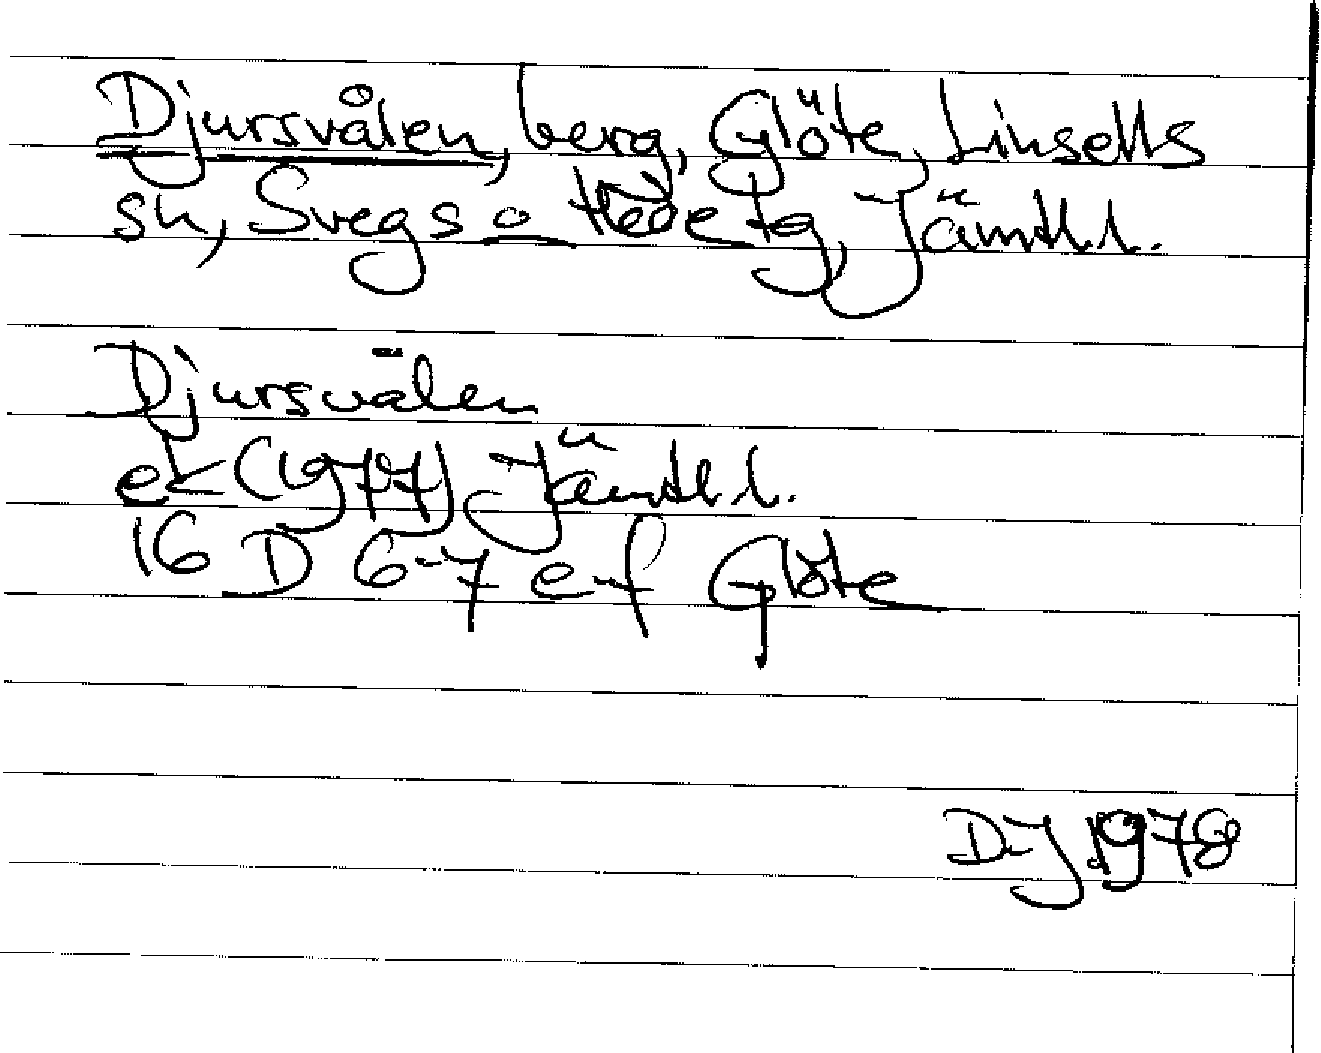 Djursvålen, berg, Glöte, Linsells
sn, Svegs o Hede tg, Jämtl.l.
Djursvålen
ek (1977) Jämtl.l.
16 D 6-7 e-f Glöte
DJ 1978